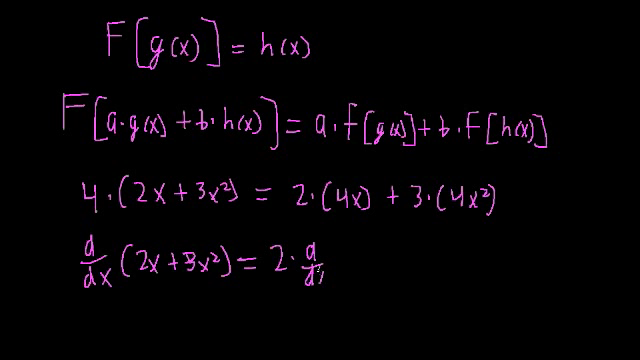 F[g(x)] = h(x)
F[a·g(x) + b·h(x)] = a·F[g(x)] + b·F[h(x)]
4·(2x + 3x²) = 2·(4x) + 3·(4x²)
d/dx (2x + 3x²) = 2· d/d